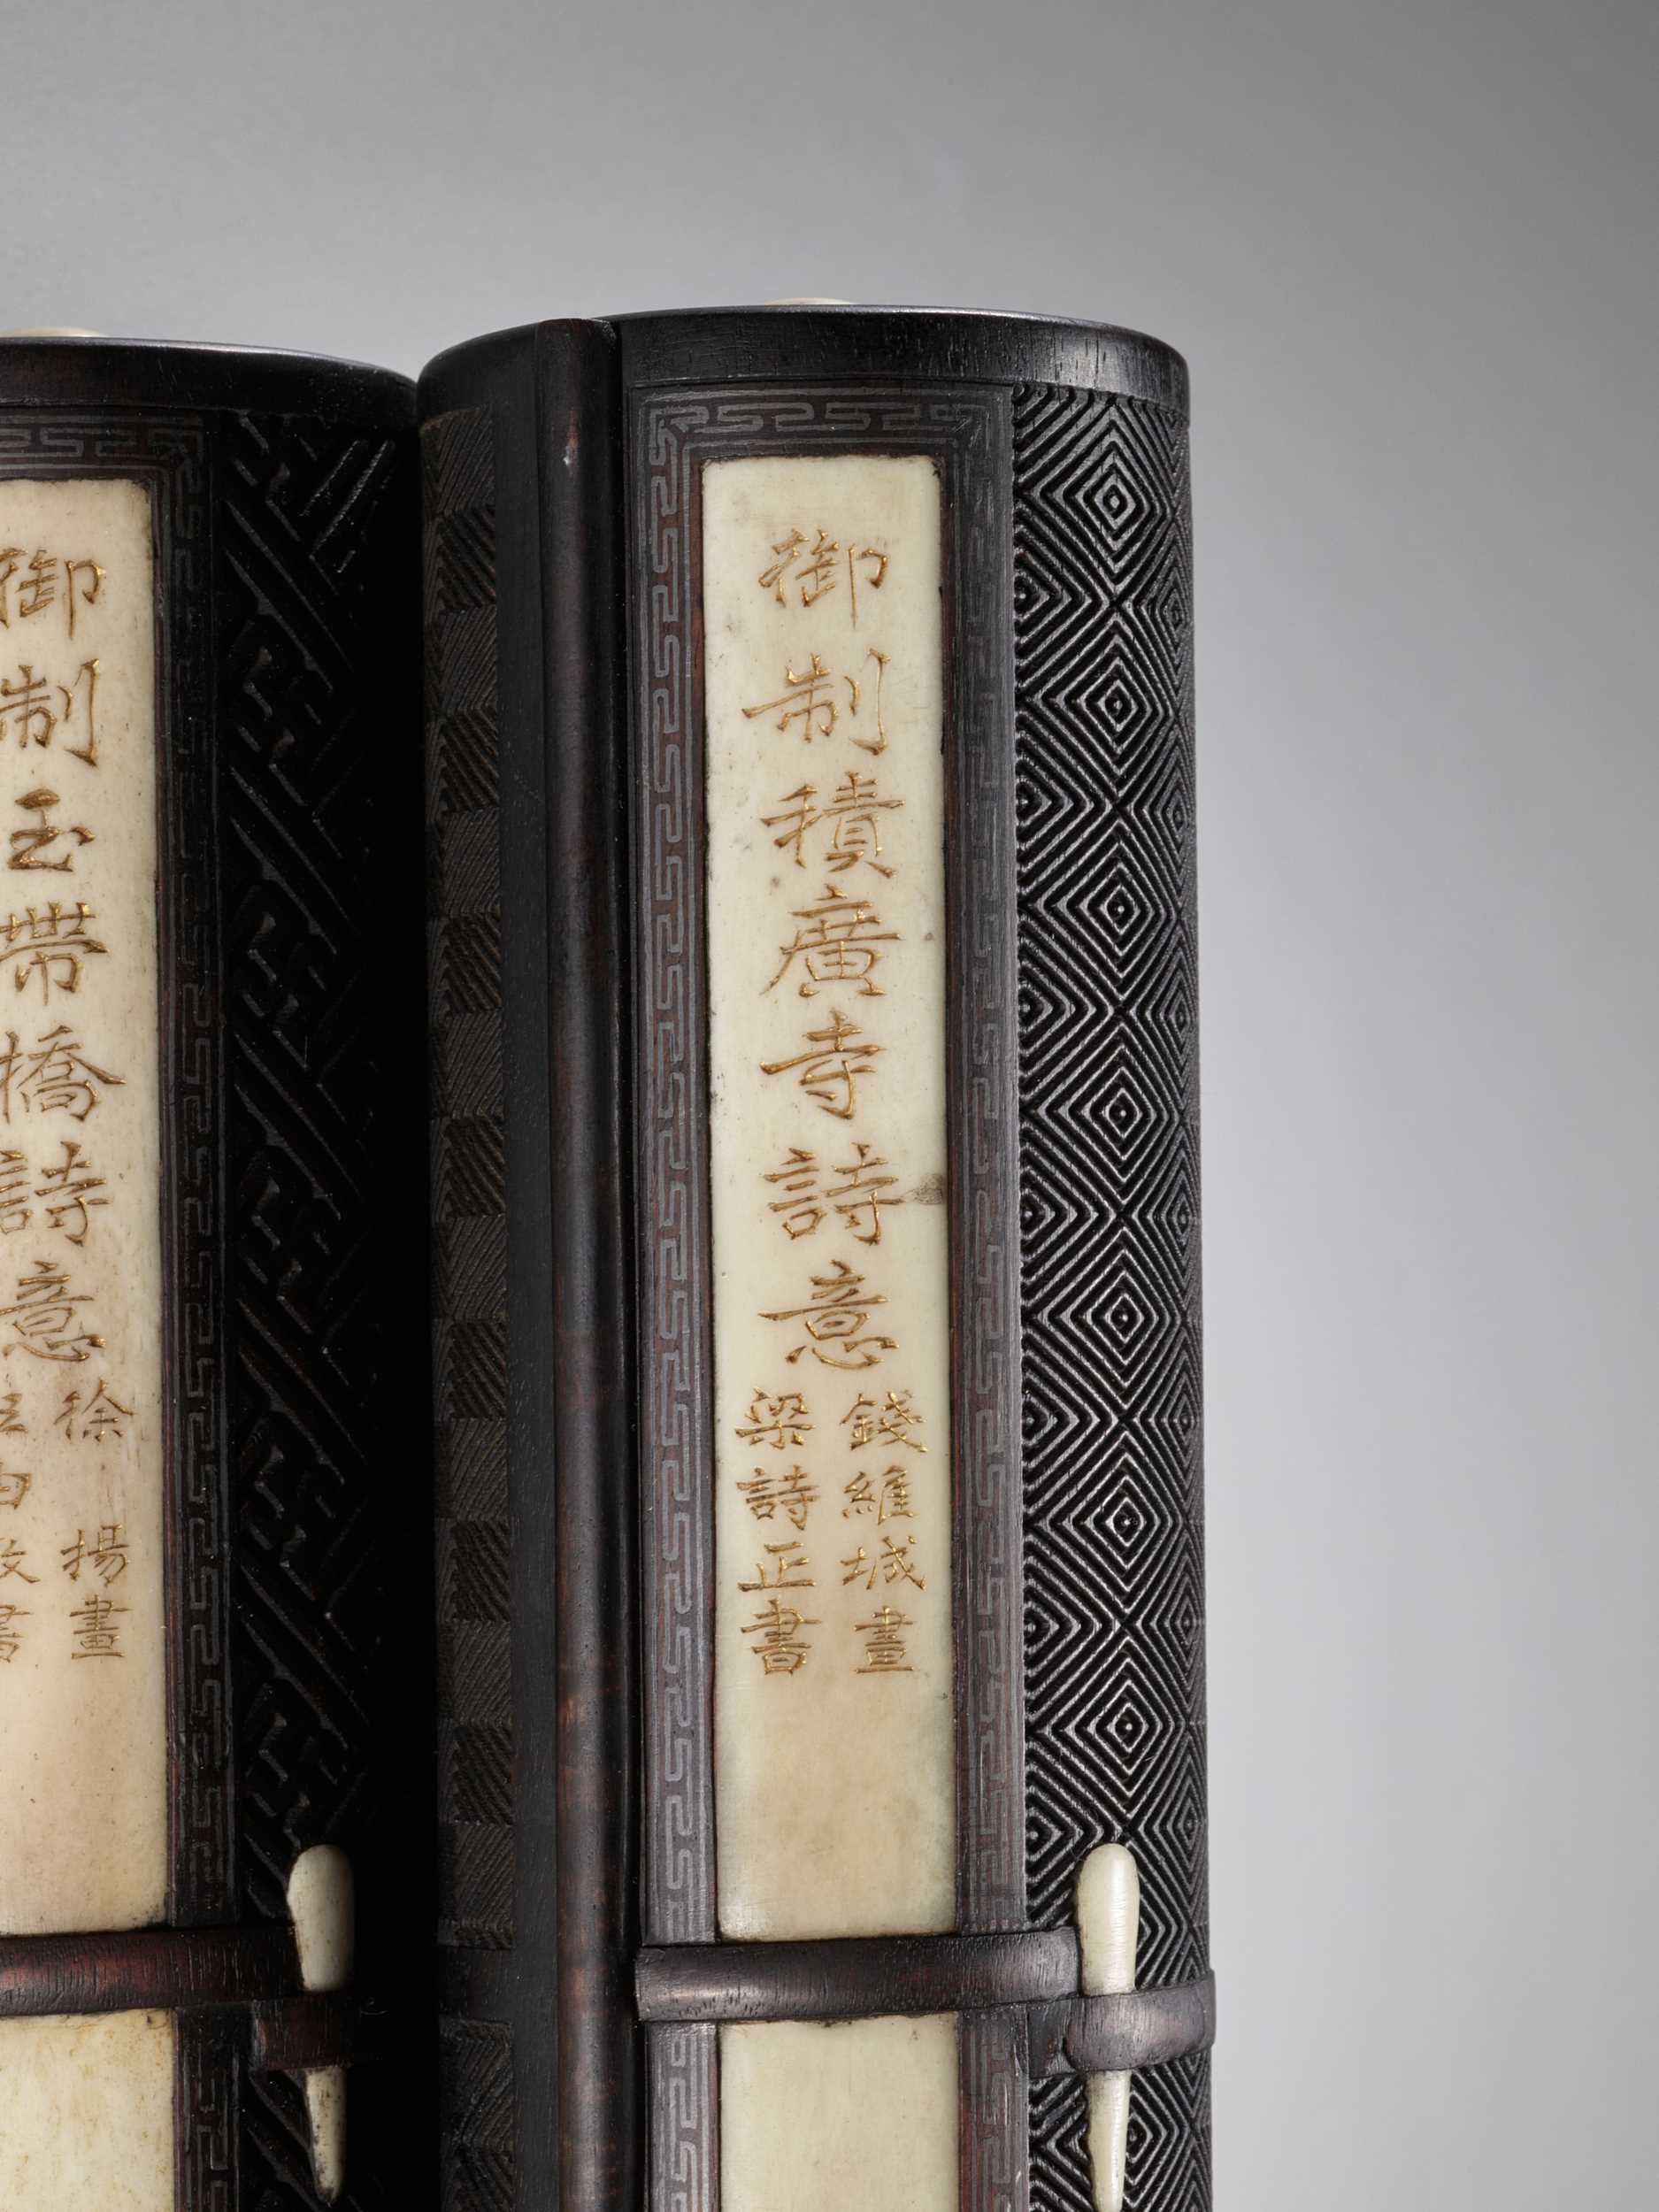 御制積廣寺詩意
錢維城畫
梁詩正書
御制玉帶橋詩意
徐揚畫
由敦書